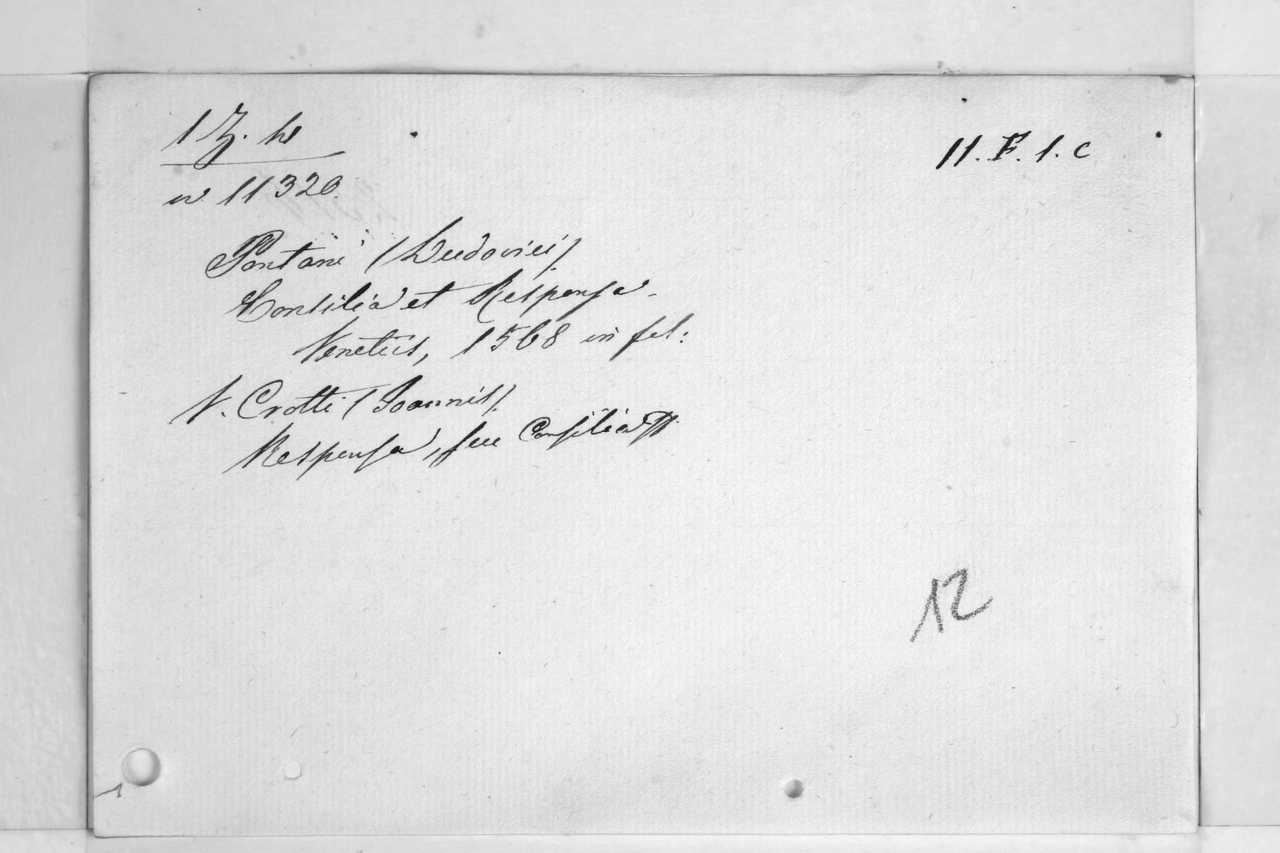 11. F. 1. c
11320.
Pontani (Ludovici)
Consilia et Responsa.
Venetiis, 1568 in fol:
V. Crotti (Joannis)
Responsa, seu Consilia
12